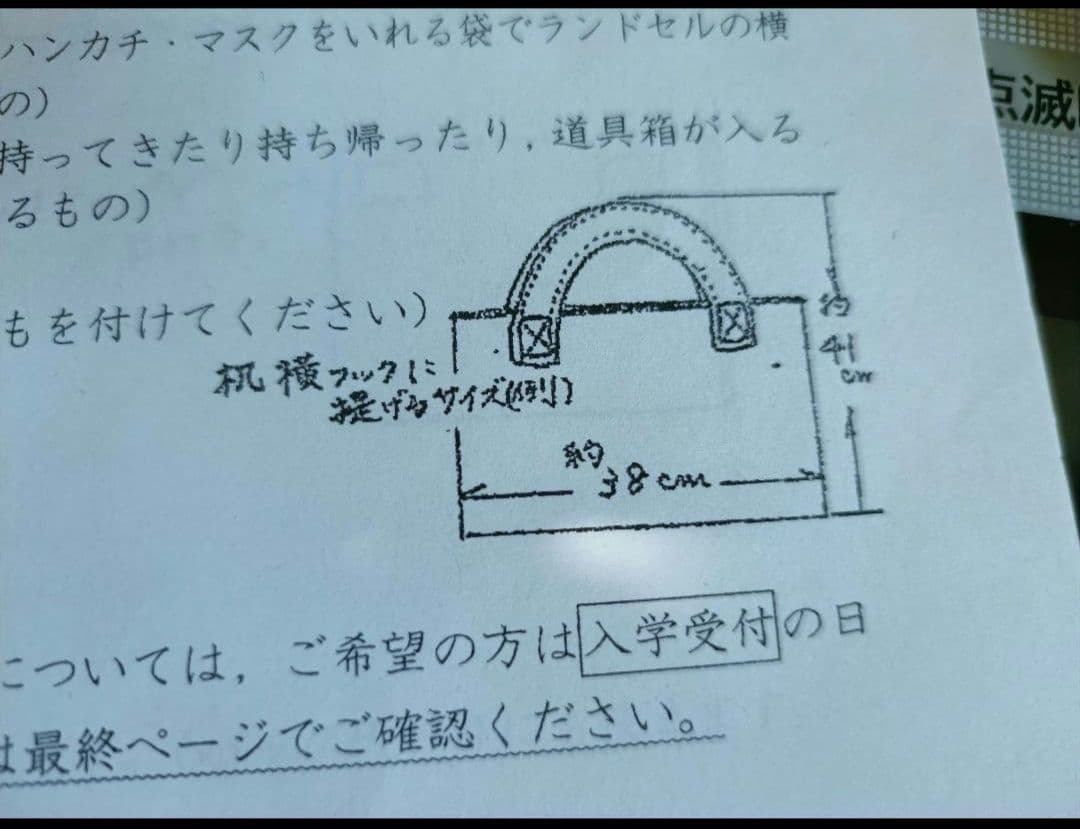 ハンカチ・マスクをいれる袋でランドセルの横
の）
持ってきたり持ち帰ったり，道具箱が入る
るもの）
もを付けてください）
机横フックに
提げるサイズ(例)
約
41
cm
約
38cm
については，ご希望の方は入学受付の日
は最終ページでご確認ください。
点滅